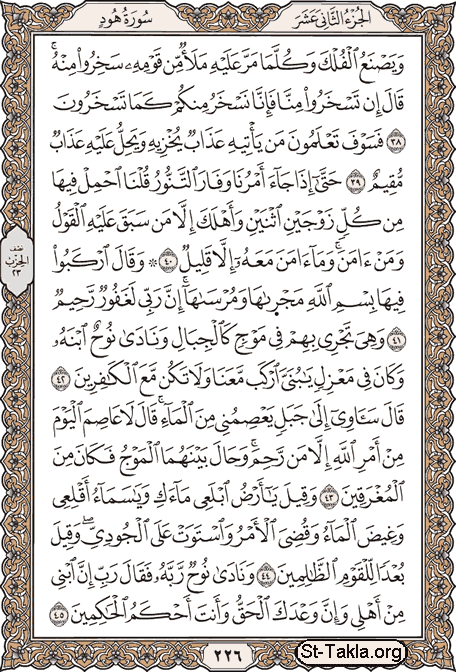 الجزء الثاني عشر
سورة هود
وَيَصْنَعُ ٱلْفُلْكَ وَكُلَّمَا مَرَّ عَلَيْهِ مَلَأٌ مِّن قَوْمِهِۦ سَخِرُوا۟ مِنْهُ ۚ
قَالَ إِن تَسْخَرُوا۟ مِنَّا فَإِنَّا نَسْخَرُ مِنكُمْ كَمَا تَسْخَرُونَ
٣٨ فَسَوْفَ تَعْلَمُونَ مَن يَأْتِيهِ عَذَابٌ يُخْزِيهِ وَيَحِلُّ عَلَيْهِ عَذَابٌ
مُّقِيمٌ ٣٩ حَتَّىٰٓ إِذَا جَآءَ أَمْرُنَا وَفَارَ ٱلتَّنُّورُ قُلْنَا ٱحْمِلْ فِيهَا
مِن كُلٍّ زَوْجَيْنِ ٱثْنَيْنِ وَأَهْلَكَ إِلَّا مَن سَبَقَ عَلَيْهِ ٱلْقَوْلُ
وَمَنْ ءَامَنَ ۚ وَمَآ ءَامَنَ مَعَهُۥٓ إِلَّا قَلِيلٌ ٤٠ ۞ وَقَالَ ٱرْكَبُوا۟
فِيهَا بِسْمِ ٱللَّهِ مَجْر۪ىٰهَا وَمُرْسَىٰهَآ ۚ إِنَّ رَبِّى لَغَفُورٌ رَّحِيمٌ
٤١ وَهِىَ تَجْرِى بِهِمْ فِى مَوْجٍ كَٱلْجِبَالِ وَنَادَىٰ نُوحٌ ٱبْنَهُۥ
وَكَانَ فِى مَعْزِلٍ يَٰبُنَىَّ ٱرْكَب مَّعَنَا وَلَا تَكُن مَّعَ ٱلْكَٰفِرِينَ ٤٢
قَالَ سَـَٔاوِىٓ إِلَىٰ جَبَلٍ يَعْصِمُنِى مِنَ ٱلْمَآءِ ۚ قَالَ لَا عَاصِمَ ٱلْيَوْمَ
مِنْ أَمْرِ ٱللَّهِ إِلَّا مَن رَّحِمَ ۚ وَحَالَ بَيْنَهُمَا ٱلْمَوْجُ فَكَانَ مِنَ
ٱلْمُغْرَقِينَ ٤٣ وَقِيلَ يَٰٓأَرْضُ ٱبْلَعِى مَآءَكِ وَيَٰسَمَآءُ أَقْلِعِى
وَغِيضَ ٱلْمَآءُ وَقُضِىَ ٱلْأَمْرُ وَٱسْتَوَتْ عَلَى ٱلْجُودِىِّ ۖ وَقِيلَ
بُعْدًا لِّلْقَوْمِ ٱلظَّٰلِمِينَ ٤٤ وَنَادَىٰ نُوحٌ رَّبَّهُۥ فَقَالَ رَبِّ إِنَّ ٱبْنِى
مِنْ أَهْلِى وَإِنَّ وَعْدَكَ ٱلْحَقُّ وَأَنتَ أَحْكَمُ ٱلْحَٰكِمِينَ ٤٥
نصف
الحزب
٢٣
٢٢٦
St-Takla.org